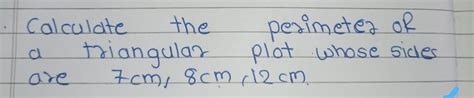 Calculate the perimeter of
a triangular plot whose sides
are 7cm, 8cm, 12cm.